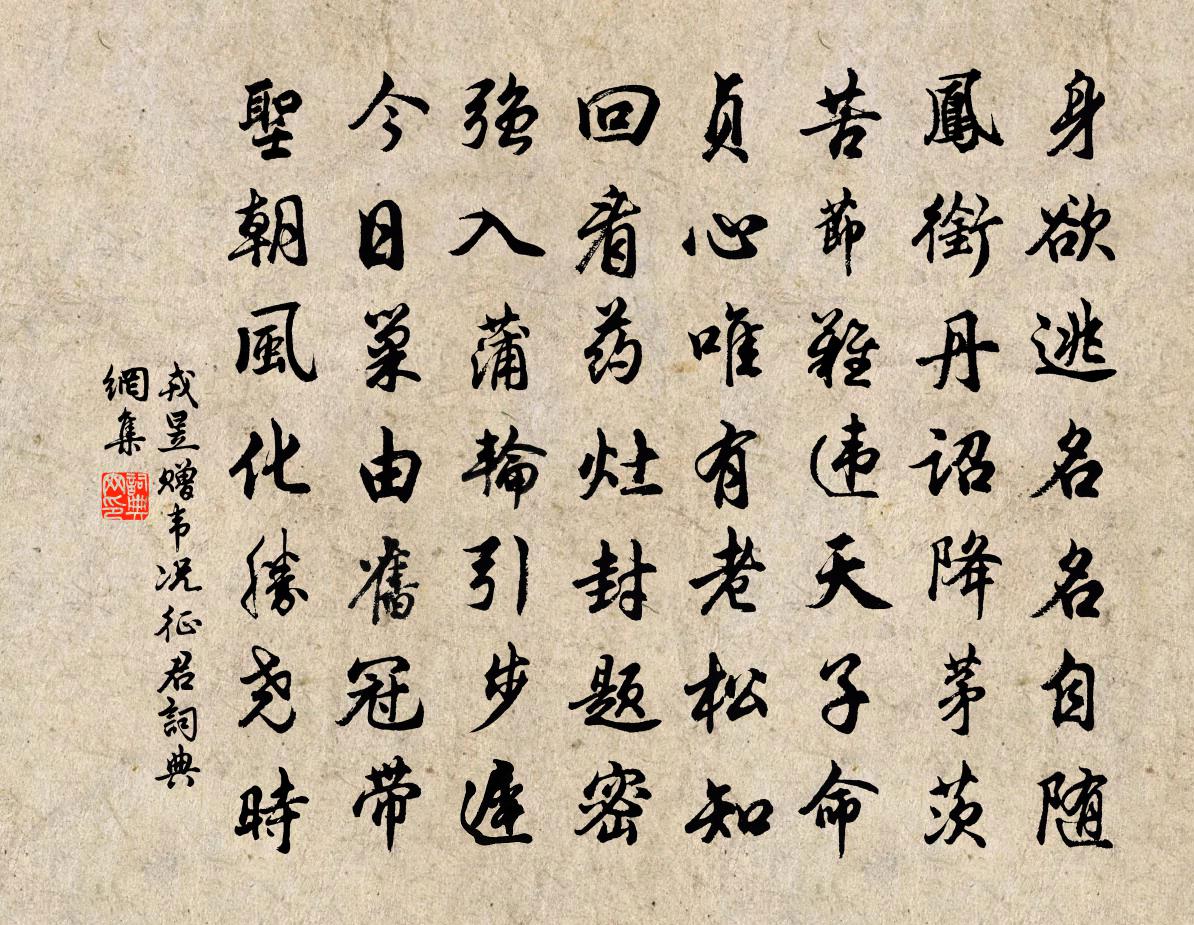 身欲逃名名自随
鳳銜丹詔降茅茨
苦節難违天子命
貞心唯有老松知
回看药灶封題密
強入蒲輪引步遲
今日巢由舊冠帶
聖朝風化勝堯時
戎昱赠韦况征君詞典
網集
詞典